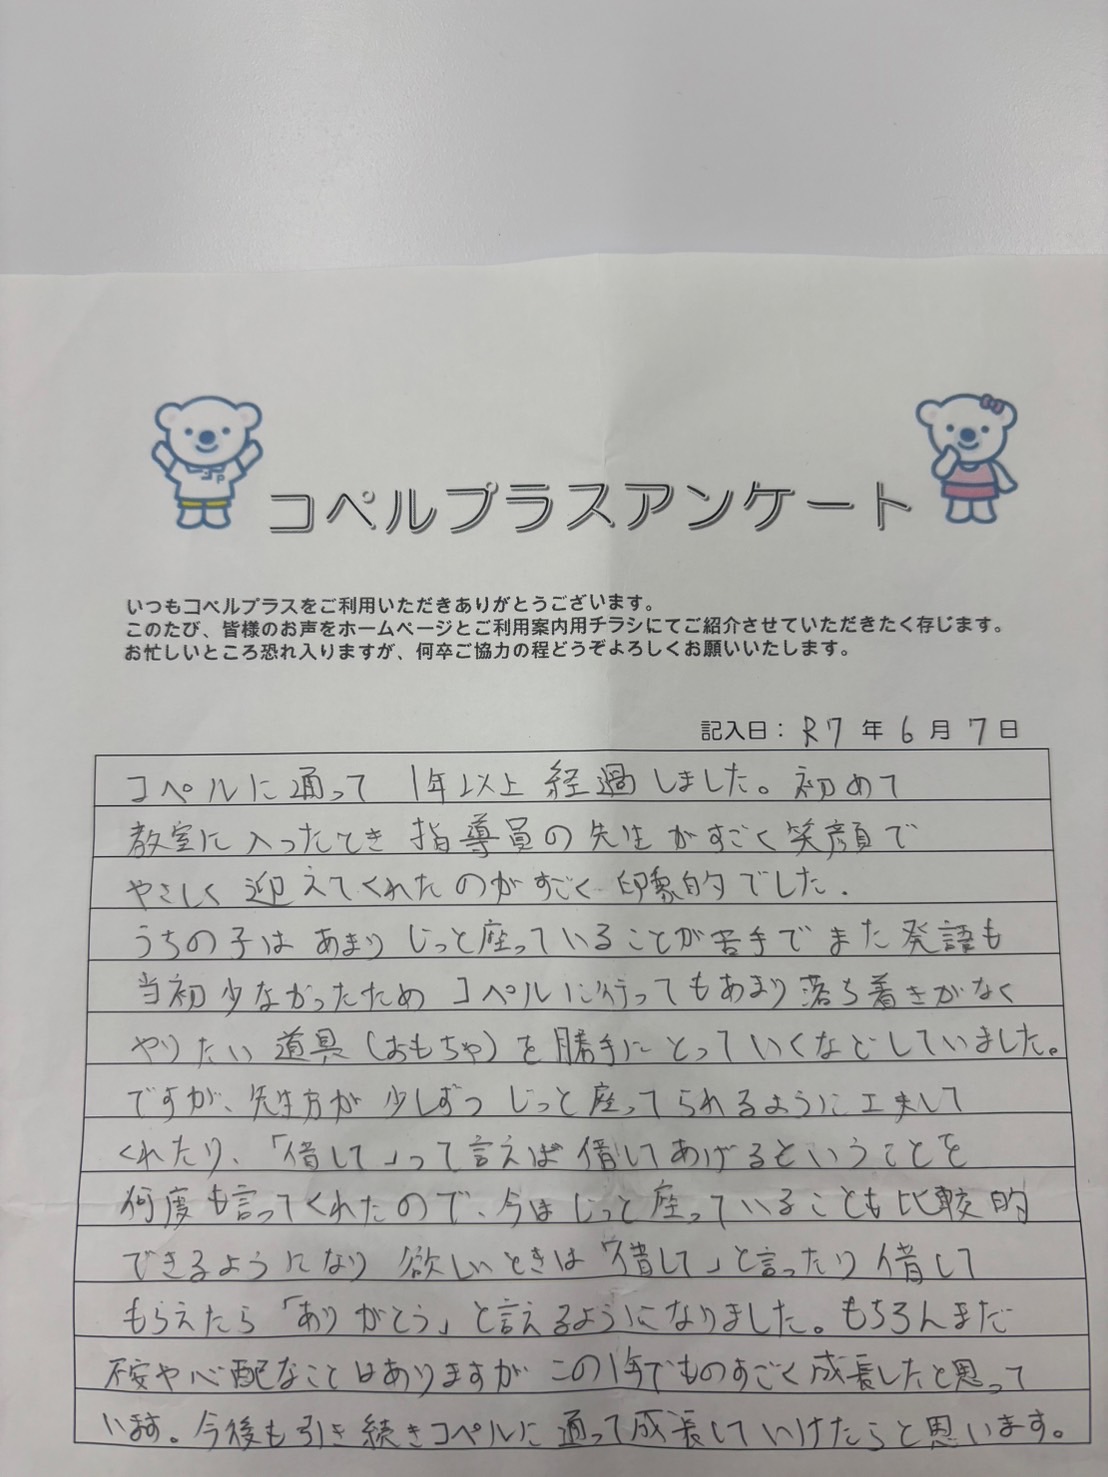 コペルプラスアンケート
いつもコペルプラスをご利用いただきありがとうございます。
このたび、皆様のお声をホームページとご利用案内用チラシにてご紹介させていただきたく存じます。
お忙しいところ恐れ入りますが、何卒ご協力の程どうぞよろしくお願いいたします。
記入日： R7 年 6 月 7 日
コペルに通って 1年以上 経過しました。初めて
教室に入ったとき 指導員の先生がすごく笑顔で
やさしく 迎えてくれたのがすごく 印象的でした.
うちの子は あまり じっと座っていることが苦手でまた発語も
当初 少なかったため コペルに行ってもあまり落ち着きがなく
やりたい 道具(おもちゃ)を勝手にとっていくなどしていました。
ですが、先生方が 少しずつ じっと座ってられるように工夫して
くれたり、「借して」って言えば借してあげるということを
何度も言ってくれたので、今はじっと座っていることも比較的
できるようになり 欲しいときは「借して」と言ったり借して
もらえたら「ありがとう」と言えるようになりました。もちろんまだ
不安や心配なことはありますがこの1年でものすごく成長したと思って
います。今後も引き続きコペルに通って成長していけたらと思います。